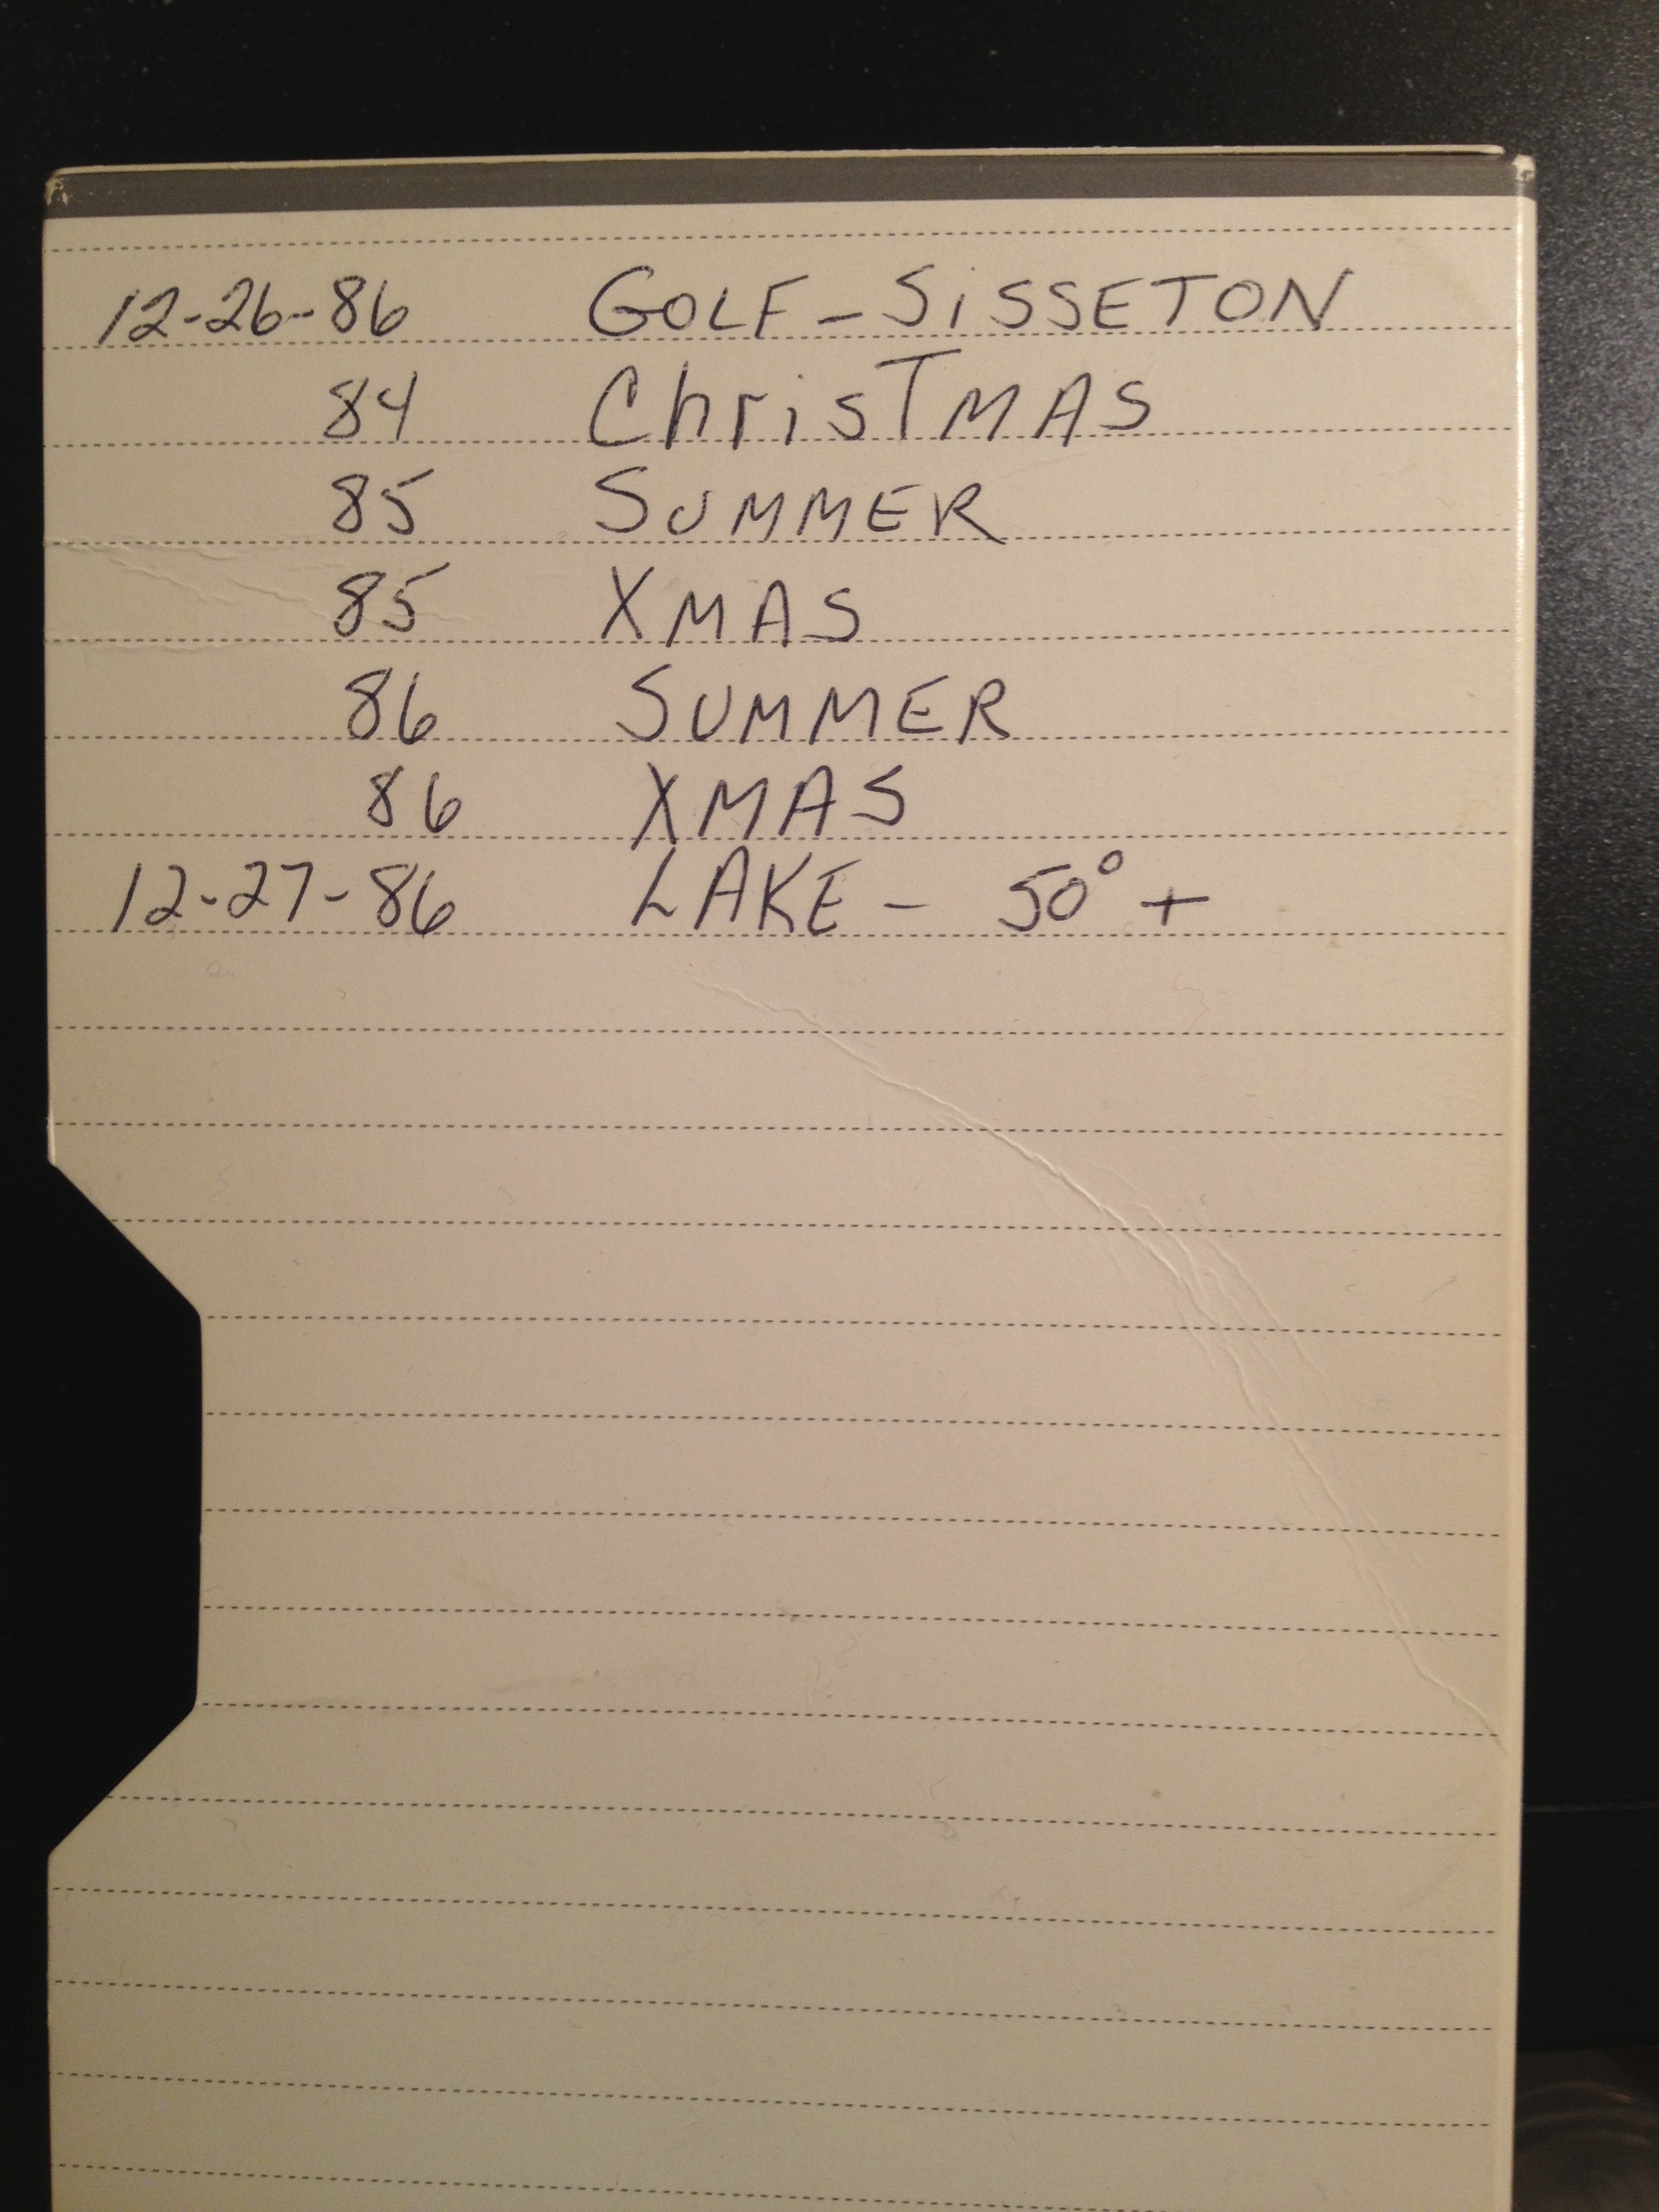 12-26-86 GOLF - SiSSETON
84 ChrisTMAS
85 SUMMER
85 XMAS
86 SUMMER
86 XMAS
12-27-86 LAKE - 50° +